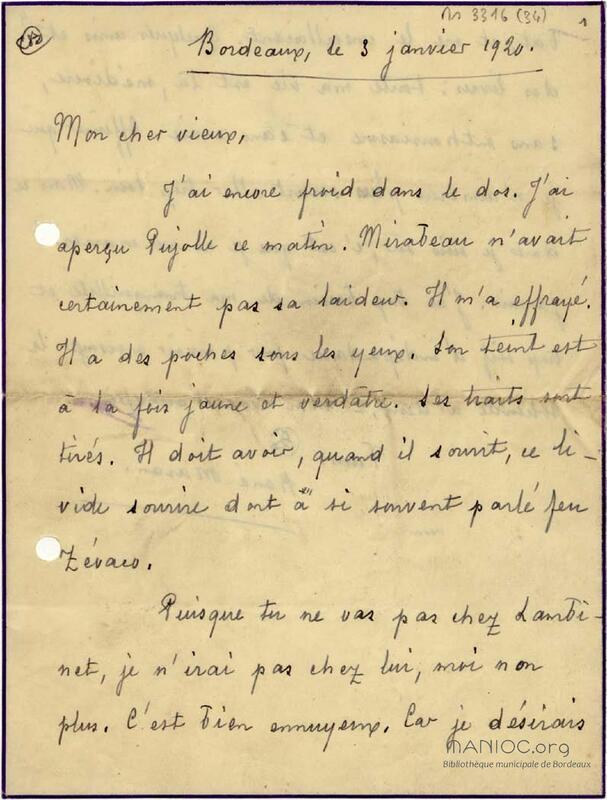 Ms 3316 (34)
1
Bordeaux, le 3 janvier 1920.
Mon cher vieux,
J'ai encore froid dans le dos. J'ai
aperçu Pujolle ce matin. Mirabeau n'avait
certainement pas sa laideur. Il m'a effrayé.
Il a des poches sous les yeux. Son teint est
à la fois jaune et verdâtre. Ses traits sont
tirés. Il doit avoir, quand il sourit, ce li-
vide sourire dont a si souvent parlé feu
Zévaco.
Puisque tu ne vas pas chez Lambi-
net, je n'irai pas chez lui, moi non
plus. C'est bien ennuyeux. Car je désirais
MANIOC.org
Bibliothèque municipale de Bordeaux